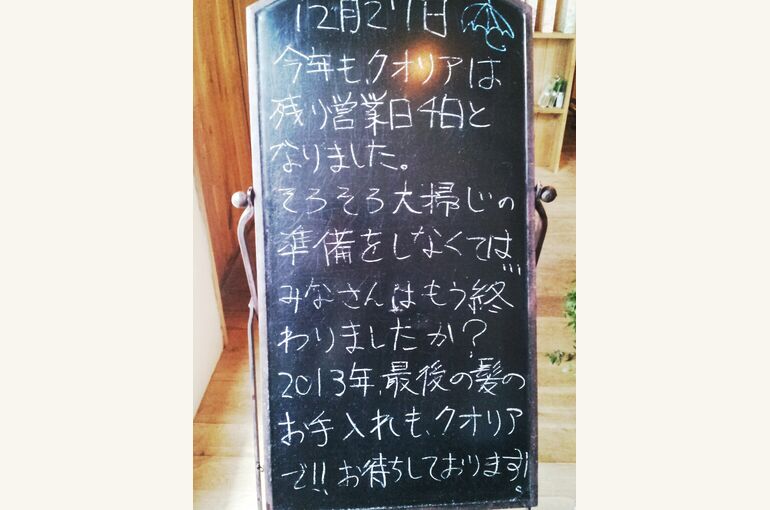 12月27日
今年も、クオリアは
残り営業日4日と
なりました。
そろそろ大掃じの
準備をしなくては…
みなさんはもう終
わりましたか？
2013年、最後の髪の
お手入れも、クオリア
で!! お待ちしております!